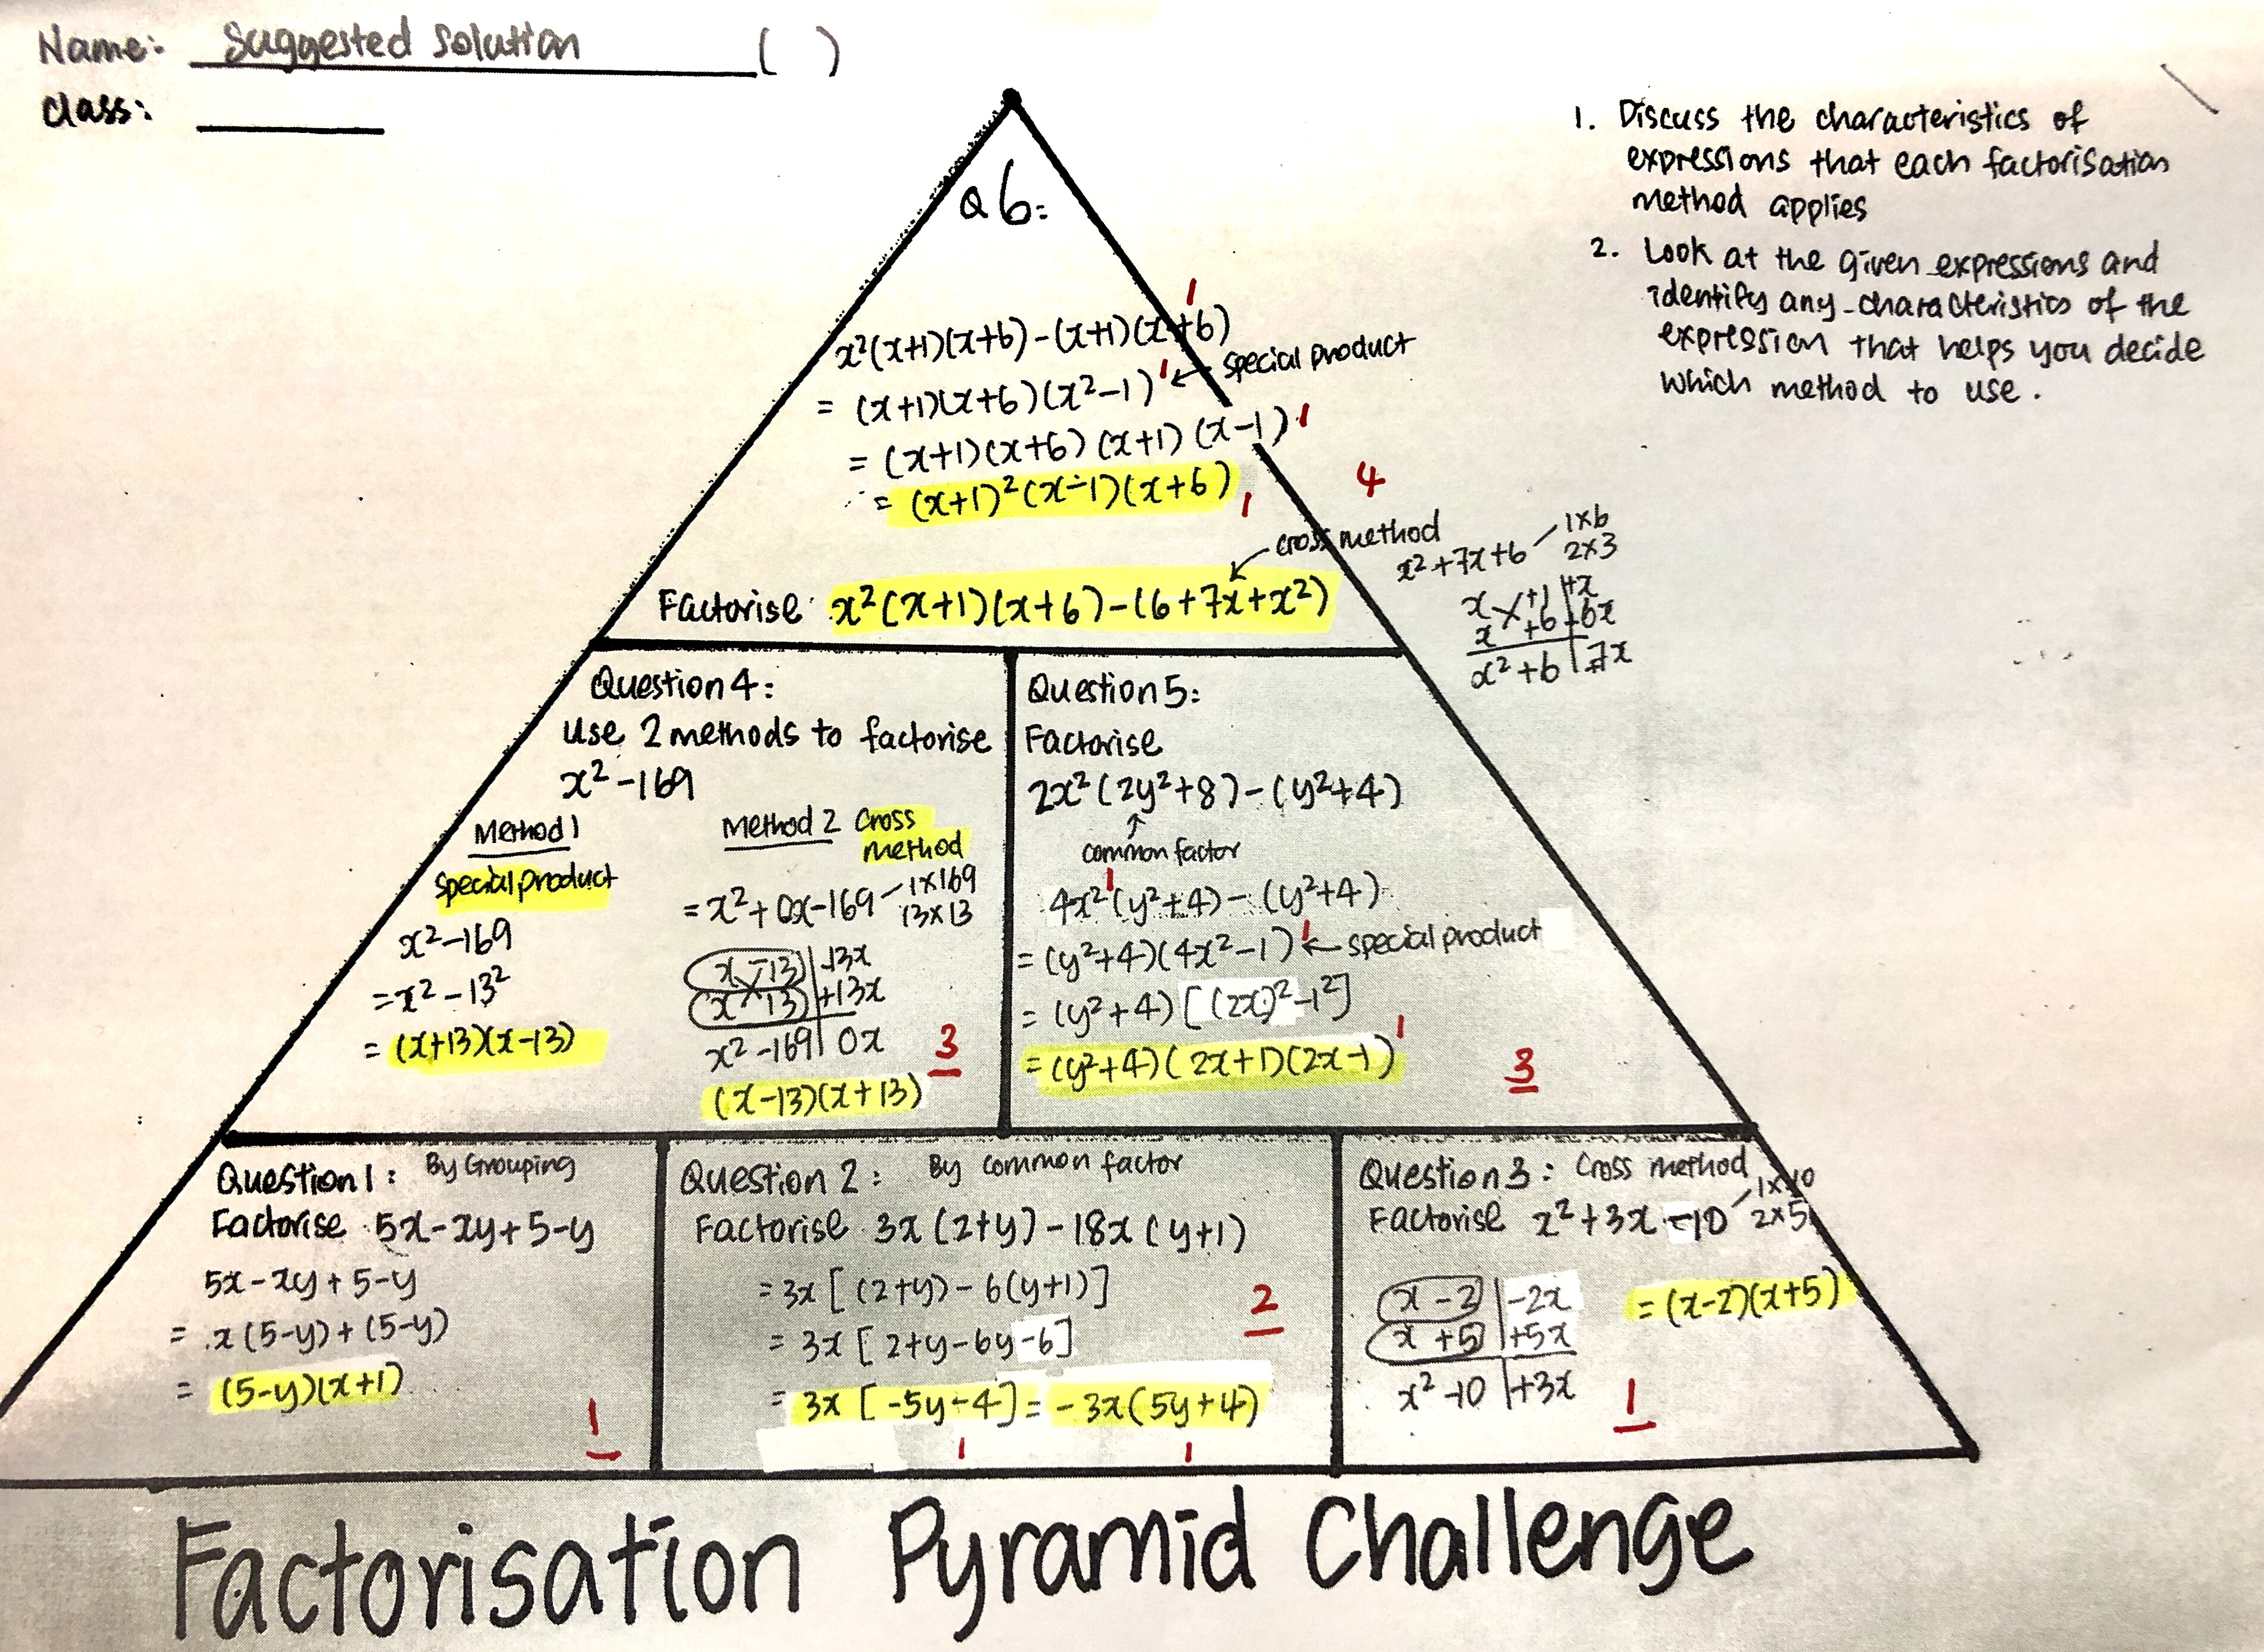 Name: Suggested Solution ( )
Class:
1. Discuss the characteristics of
expressions that each factorisation
method applies
2. Look at the given expressions and
identify any characteristics of the
expression that helps you decide
which method to use.
Q6:
1
x²(x+1)(x+6)-(x+1)(x+6)
= (x+1)(x+6)(x²-1) 1 ← special product
= (x+1)(x+6)(x+1)(x-1) 1
= (x+1)²(x-1)(x+6) 1
4
cross method
Factorise x²(x+1)(x+6)-(6+7x+x²)
x²+7x+6 1×6
2×3
x +1 +x
x +6 +6x
x² +6 7x
Question 4:
Use 2 methods to factorise
x²-169
Method 1
Special product
x²-169
=x²-13²
= (x+13)(x-13)
Method 2 Cross
method
=x²+0x-169 1×169
13×13
x -13 -13x
x 13 +13x
x² -169 0x
3
(x-13)(x+13)
Question 5:
Factorise
2x²(2y²+8)-(y²+4)
↑
common factor
1
4x²(y²+4)-(y²+4)
= (y²+4)(4x²-1) 1 ← special product
= (y²+4)[(2x)²-1²]
= (y²+4)(2x+1)(2x-1) 1
3
Question 1: By Grouping
Factorise 5x-xy+5-y
5x-xy+5-y
= x(5-y)+(5-y)
= (5-y)(x+1)
1
Question 2: By common factor
Factorise 3x(2+y)-18x(y+1)
= 3x[(2+y)-6(y+1)]
= 3x[2+y-6y-6]
2
= 3x[-5y-4] = -3x(5y+4)
1 1
Question 3: Cross method
Factorise x²+3x-10 1×10
2×5
x -2 -2x
x +5 +5x
x² -10 +3x
= (x-2)(x+5)
1
Factorisation Pyramid Challenge